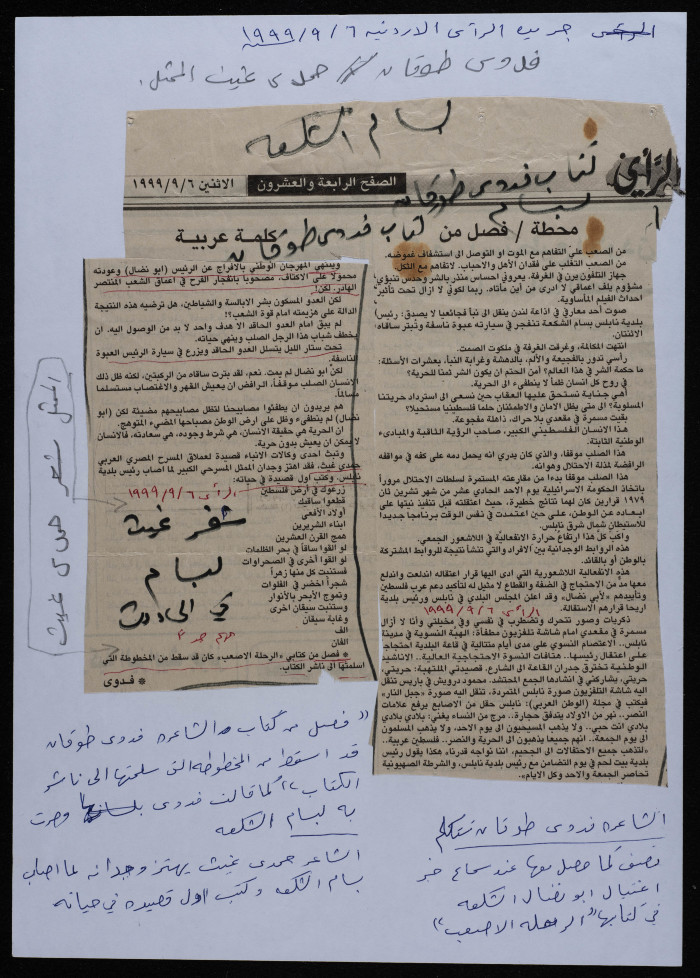 جريدة الرأي الاردنية ١٩٩٩/٩/٦
فدوى طوقان حمدي غيث الممثل.
بسام الشكعة
كتاب فدوى طوقان
بسام
الرأي
الصفحة الرابعة والعشرون
الاثنين ١٩٩٩/٩/٦
كلمة عربية
محطة / فصل من كتاب فدوى طوقان
من الصعب عليّ التفاهم مع الموت او التوصل الى استشفاف غموضه.
من الصعب التغلب على فقدان الأهل والاحباب. لاتفاهم مع الثكل.
جهاز التلفون يرن في الغرفة، يعروني احساس منذر بالشر وحدس تنبؤي
مشؤوم يلف أعماقي لا ادري من أين مأتاه، ربما لكوني لا ازال تحت تأثير
احداث الفيلم المأساوية.
صوت أحد معارفي في اذاعة لندن ينقل الى نبأ فجائعيا لا يصدق: رئيس
بلدية نابلس بسام الشكعة تنفجر في سيارته عبوة ناسفة وتبتر ساقاه
الاثنتان.
انتهت المكالمة، وغرقت الغرفة في ملكوت الصمت.
رأسي تدور بالفجيعة والألم، بالدهشة وغرابة النبأ، بعشرات الأسئلة:
ما حكمة الشر في هذا العالم؟ أمن الحتم ان يكون الشر ثمنا للحرية؟
في روح كل انسان ظمأ لا ينطفىء الى الحرية.
أهي جناية نستحق عليها العقاب حين نسعى الى استرداد حريتنا
المسلوبة؟ الى متى يظل الامان والاطمئنان حلما فلسطينيا مستحيلا؟
بقيت مسمرة في مقعدي بلا حراك، ذاهلة مفجوعة.
هذا الانسان الفلسطيني الكبير، صاحب الرؤية الثاقبة والمبادىء
الوطنية الثابتة.
هذا الصلب موقفا، والذي كان يدري انه يحمل دمه على كفه في مواقفه
الرافضة لمذلة الاحتلال وهوانه.
هذا الصلب موقفا بدءا من مقارعته المستمرة لسلطات الاحتلال مروراً
باتخاذ الحكومة الاسرائيلية يوم الاحد الحادي عشر من شهر تشرين ثان
١٩٧٩ قرارين كان لهما نتائج خطيرة، حيث اعتقلته قبل تنفيذ نيتها على
ابعاده عن الوطن، على حين اعتمدت في نفس الوقت برنامجا جديدا
للاستيطان شمال شرق نابلس.
واكب كل هذا ارتفاع حرارة الانفعالية في اللاشعور الجمعي.
هذه الروابط الوجدانية بين الافراد والتي تنشأ نتيجة للروابط المشتركة
بالوطن أو بالقائد.
هذه الانفعالية اللاشعورية التي ادى اليها قرار اعتقاله اندلعت واندلع
معها مدّ من الاحتجاج في الضفة والقطاع لا مثيل له لتأكيد دعم عرب فلسطين
وتأييدهم «لأبي نضال» وقد اعلن المجلس البلدي في نابلس ورئيس بلدية
اريحا قرارهم الاستقالة.
الرأي ١٩٩٩/٩/٦
ذكريات وصور تتحرك وتضطرب في نفسي وفي مخيلتي وأنا لا أزال
مسمرة في مقعدي امام شاشة تلفزيون مطفأة: الهبة النسوية في مدينة
نابلس.. الاعتصام النسوي على مدى أيام متتالية في قاعة البلدية احتجاجا
على اعتقال رئيسها.. هتافات النسوة الاحتجاجية العالية.. الاناشيد
الوطنية تخترق جدران القاعة الى الشارع. قصيدتي الملتهبة: حريتي،
حريتي، يشاركني في انشادها الجمع المحتشد. محمود درويش في باريس تنقل
اليه شاشة التلفزيون صورة نابلس المتمردة، تنقل اليه صورة «جبل النار»
فيكتب في مجلة (الوطن العربي): نابلس حقل من الاصابع يرفع علامات
النصر.. نهر من الاولاد يتدفق حجارة.. مرج من النساء يغني: بلادي بلادي
بلادي انت حبي.. ولا يذهب المسيحيون الى يوم الاحد، ولا يذهب المسلمون
الى يوم الجمعة.. انهم جميعا يذهبون الى الحرية والنصر.. فلسطين عربية.
«لتذهب جميع الاحتفالات الى الجحيم، اننا نواجه قدرنا» هكذا يقول رئيس
بلدية بيت لحم في يوم التضامن مع رئيس بلدية نابلس، والشرطة الصهيونية
تحاصر الجمعة والاحد وكل الايام».
وينتهي المهرجان الوطني بالافراج عن الرئيس (ابو نضال) وعودته
محمولا على الاكتاف، مصحوبا بانفجار الفرح في اعماق الشعب المنتصر
الهادر. لكن!
لكن العدو المسكون بشر الابالسة والشياطين، هل ترضيه هذه النتيجة
الدالة على هزيمته امام قوة الشعب؟!
لم يبق امام العدو الحاقد الا هدف واحد لا بد من الوصول اليه. ان
يخطف شباب هذا الرجل الصلب وينهي حياته.
تحت ستار الليل يتسلل العدو الحاقد ويزرع في سيارة الرئيس العبوة
الناسفة.
لكن ابو نضال لم يمت. نعم، لقد بترت ساقاه من الركبتين، لكنه ظل ذلك
الانسان الصلب موقفاً، الرافض ان يعيش القهر والاغتصاب مستسلما
مسالماً.
هم يريدون ان يطفئوا مصابيحنا لتظل مصابيحهم مضيئة لكن (ابو
نضال) لم ينطفىء وظل على ارض الوطن مصباحها المضيء المتوهج.
ان الحرية هي حقيقة الانسان، هي شرط وجوده، هي سعادته، فالانسان
لا يمكن ان يعيش بدون حرية.
وتبث احدى وكالات الانباء قصيدة لعملاق المسرح المصري العربي
حمدي غيث، فقد اهتز وجدان الممثل المسرحي الكبير لما اصاب رئيس بلدية
نابلس، وكتب أول قصيدة في حياته:
زرعوك في ارض فلسطين
الرأي ١٩٩٩/٩/٦
قطعوا ساقيك
اولاد الأفعى
ابناء الشريرين
همج القرن العشرين
لو القوا ساقاً في بحر الظلمات
لو القوا أخرى في الصحراوات
فستنبت كل منها زهراً
شجراً اخضر في الفلوات
وتموج الأبحر بالأنوار
وستنبت سيقان اخرى
وغابة سيقان
الف
الفان
شعر غيث
لبسام
في الحادث
* فصل من كتابي «الرحلة الاصعب» كان قد سقط من المخطوطة التي
اسلمتها الى ناشر الكتاب.
* فدوى
الممثل شعر حمدي غيث
"فصل من كتاب الشاعرة فدوى طوقان
قد اسقط من المخطوطة التي سلمتها الى ناشر
الكتاب" كما قالت فدوى بلسانها وصرت
به لبسام الشكعة
الشاعر حمدي غيث يهتز وجدانه لما اصاب
بسام الشكعة وكتب اول قصيدة في حياته
الشاعرة فدوى طوقان تتكلم
تصف كما حصل معها عند سماع خبر
اغتيال ابو نضال الشكعة
في كتابها "الرحلة الاصعب"